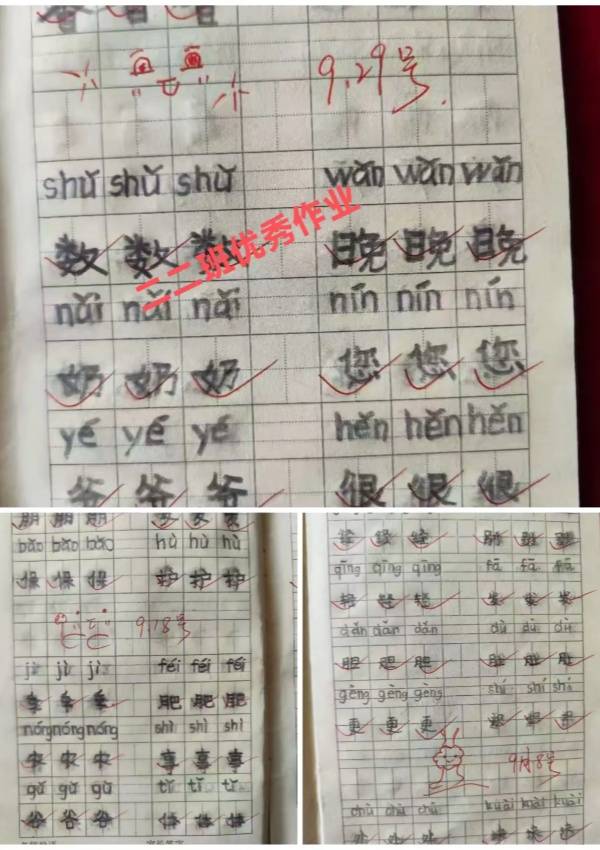 9.29号
shǔ shǔ shǔ wǎn wǎn wǎn
数 数 数 晚 晚 晚
二二班优秀作业
nǎi nǎi nǎi nín nín nín
奶 奶 奶 您 您 您
yé yé yé hěn hěn hěn
爷 爷 爷 很 很 很
朋 朋 朋
bǎo bǎo bǎo hù hù hù
保 保 保 护 护 护
9.18号
jì jì jì féi féi féi
季 季 季 肥 肥 肥
nóng nóng nóng shì shì shì
农 农 农 事 事 事
gǔ gǔ gǔ tǐ tǐ tǐ
谷 谷 谷 体 体 体
经 经 经
qīng qīng qīng fā fā fā
轻 轻 轻 发 发 发
dǎn dǎn dǎn dù dù dù
胆 胆 胆 肚 肚 肚
gèng gèng gèng
更 更 更
chù chù chù kuài kuài kuài
处 处 处